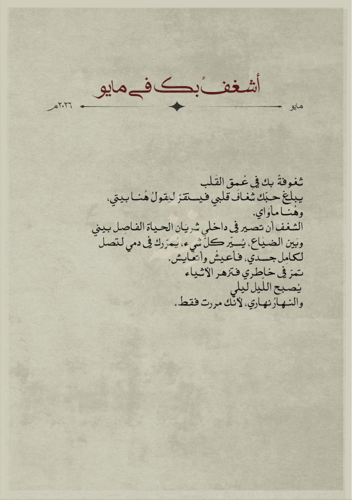 أشغفُ بك في مايو
مايو
٢٠٢٦م
شغوفةٌ بك في عُمق القلب
يبلغ حبّك شغاف قلبي فيستقرّ ليقول هُنا بيتي،
وهُنا مأواي.
الشغف أن تصير في داخلي شريان الحياة الفاصل بيني
وبين الضياع، يُسيّر كلّ شيء، يمرّرك في دمي لتصل
لكامل جسدي، فأعيش وأتعايش.
تمرّ في خاطري فتزهر الأشياء
يُصبح الليل ليلي
والنهار نهاري، لأنك مررت فقط.